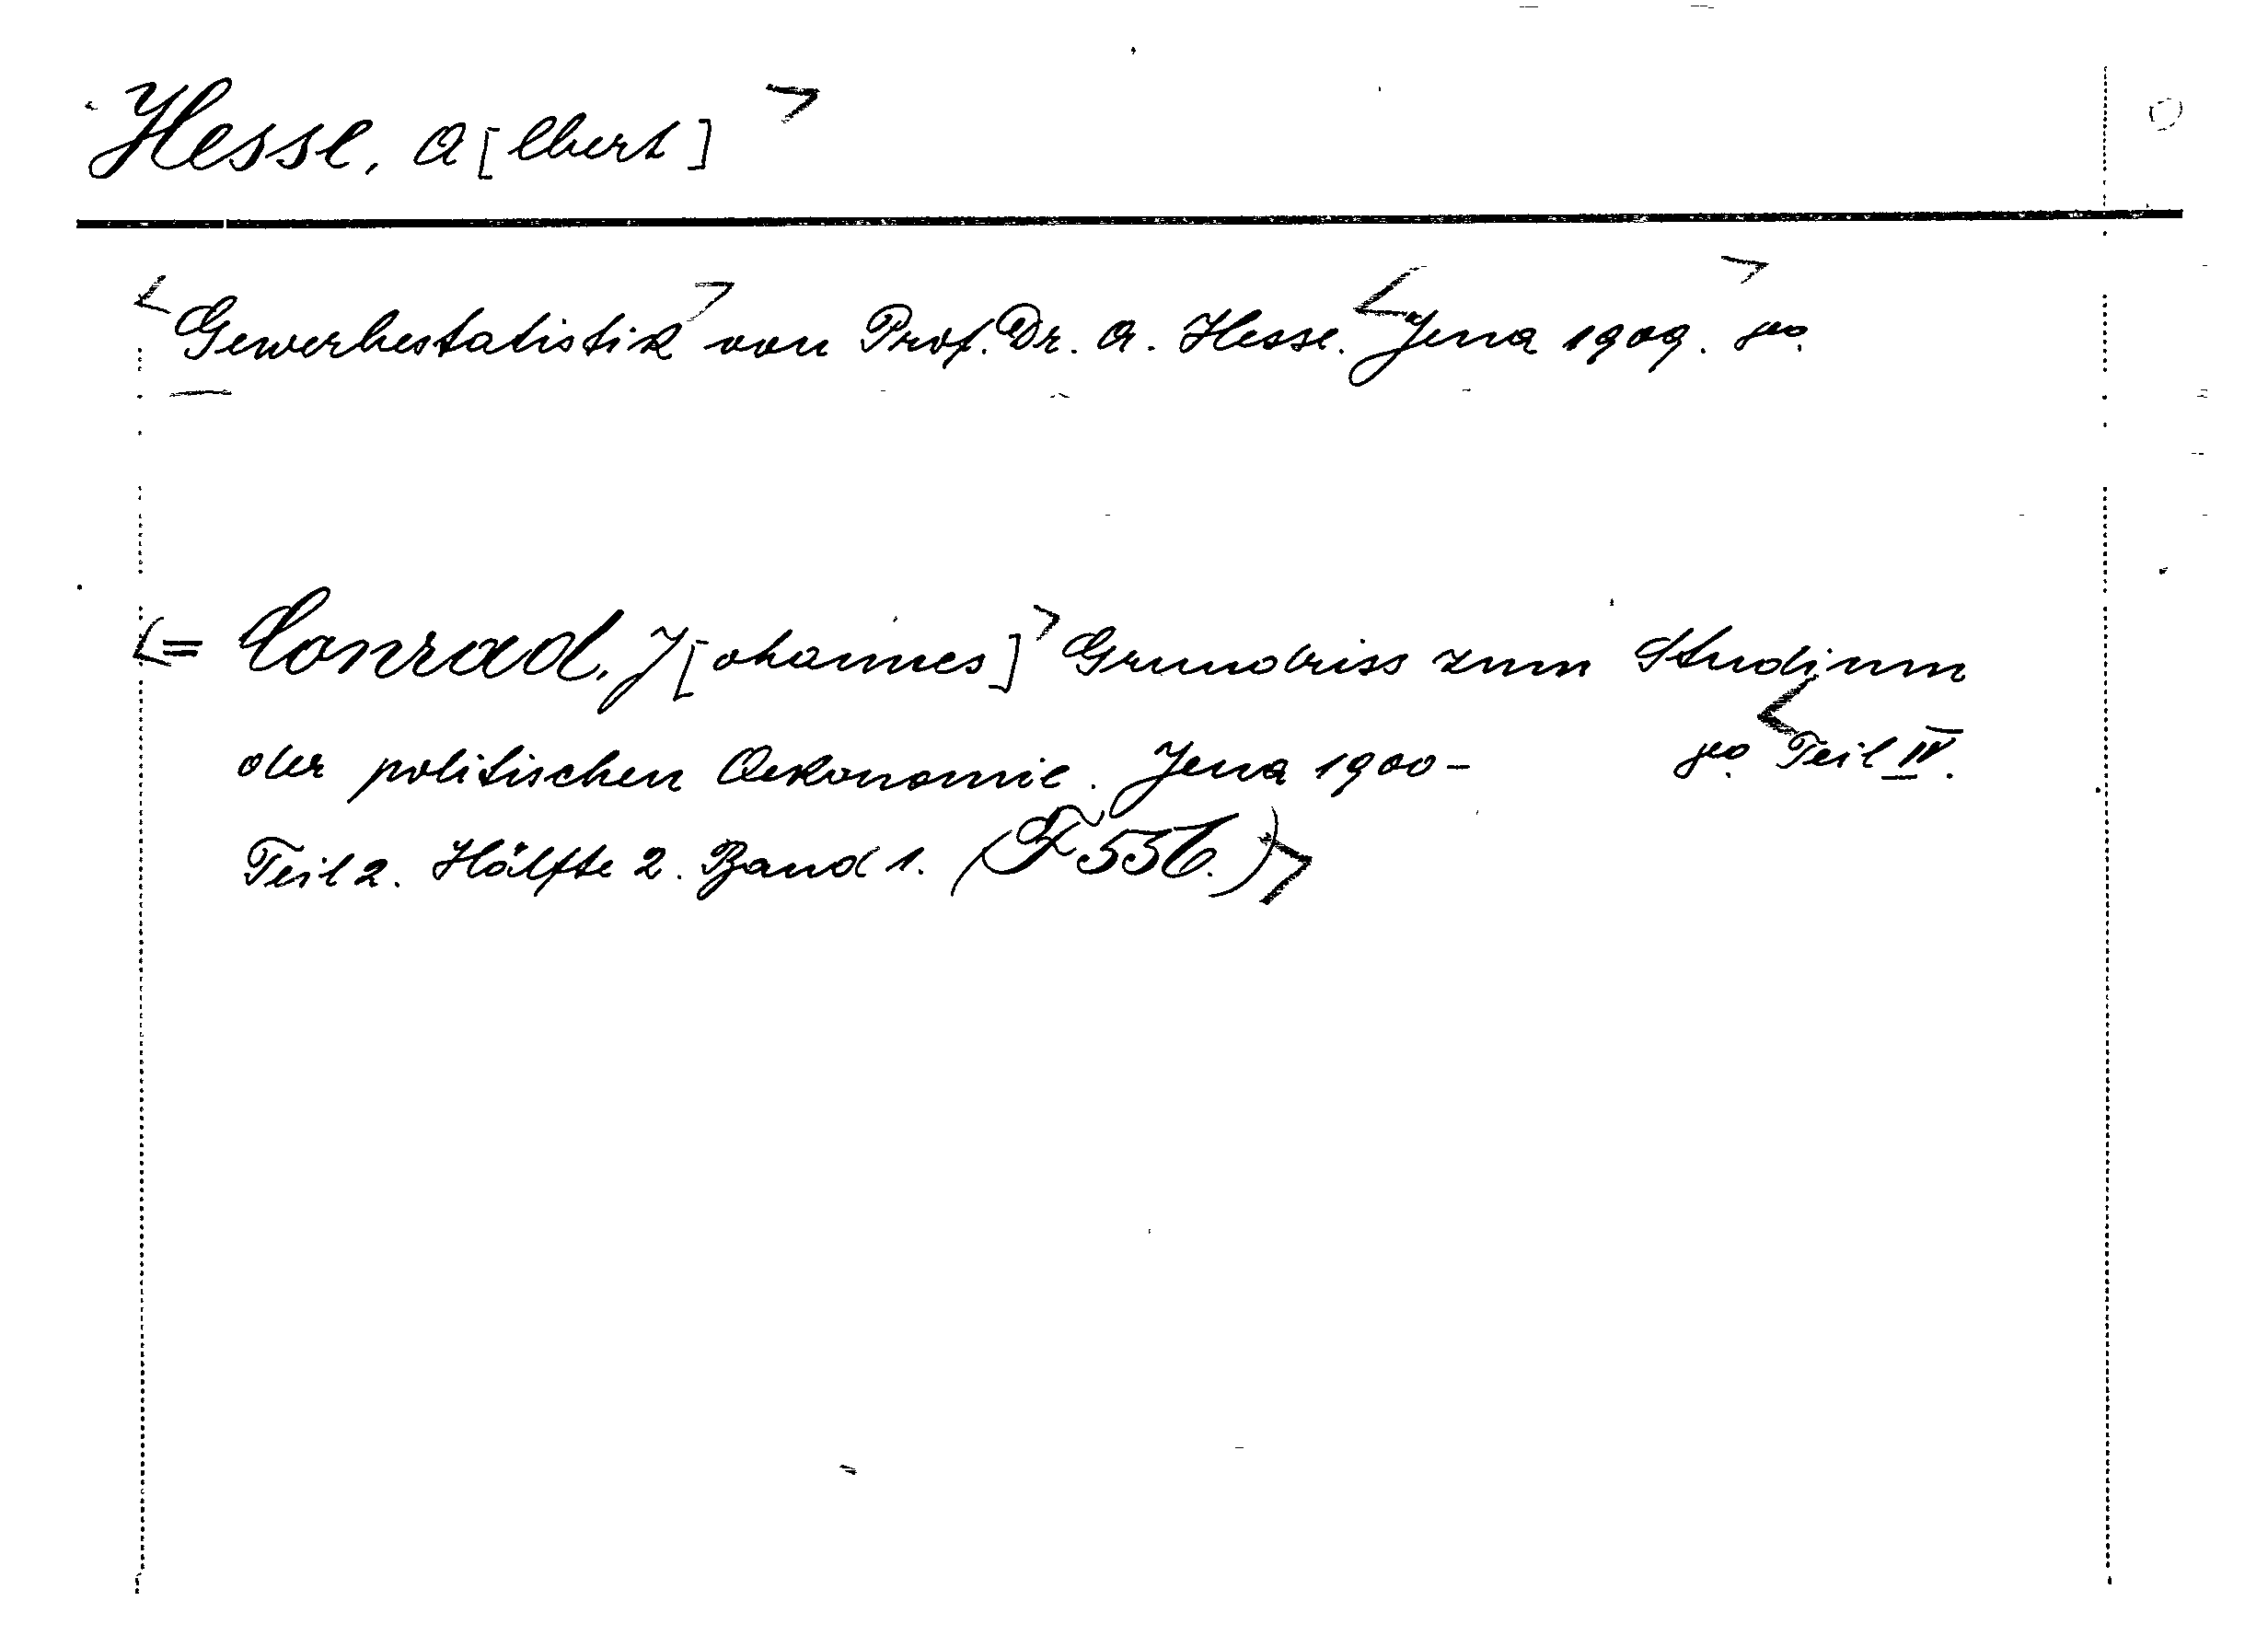 Hesse, A[lbert]
Gewerbestatistik von Prof. Dr. A. Hesse. Jena 1909. 8o.
= Conrad, J[ohannes] Grundriss zum Studium
der politischen Oekonomie. Jena 1900- 8o. Teil IV.
Teil 2. Hälfte 2. Band 1. (F 556.)